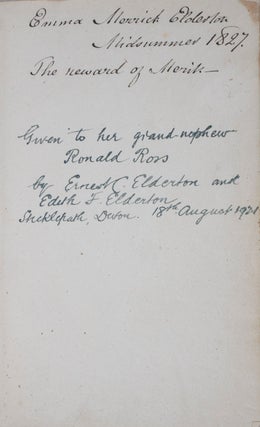 Emma Merrick Elderton
Midsummer 1827.
The reward of Merit
Given to her grand-nephew
Ronald Ross
by Ernest C. Elderton and
Edith F. Elderton
Sticklepath, Devon. 18th August 1921